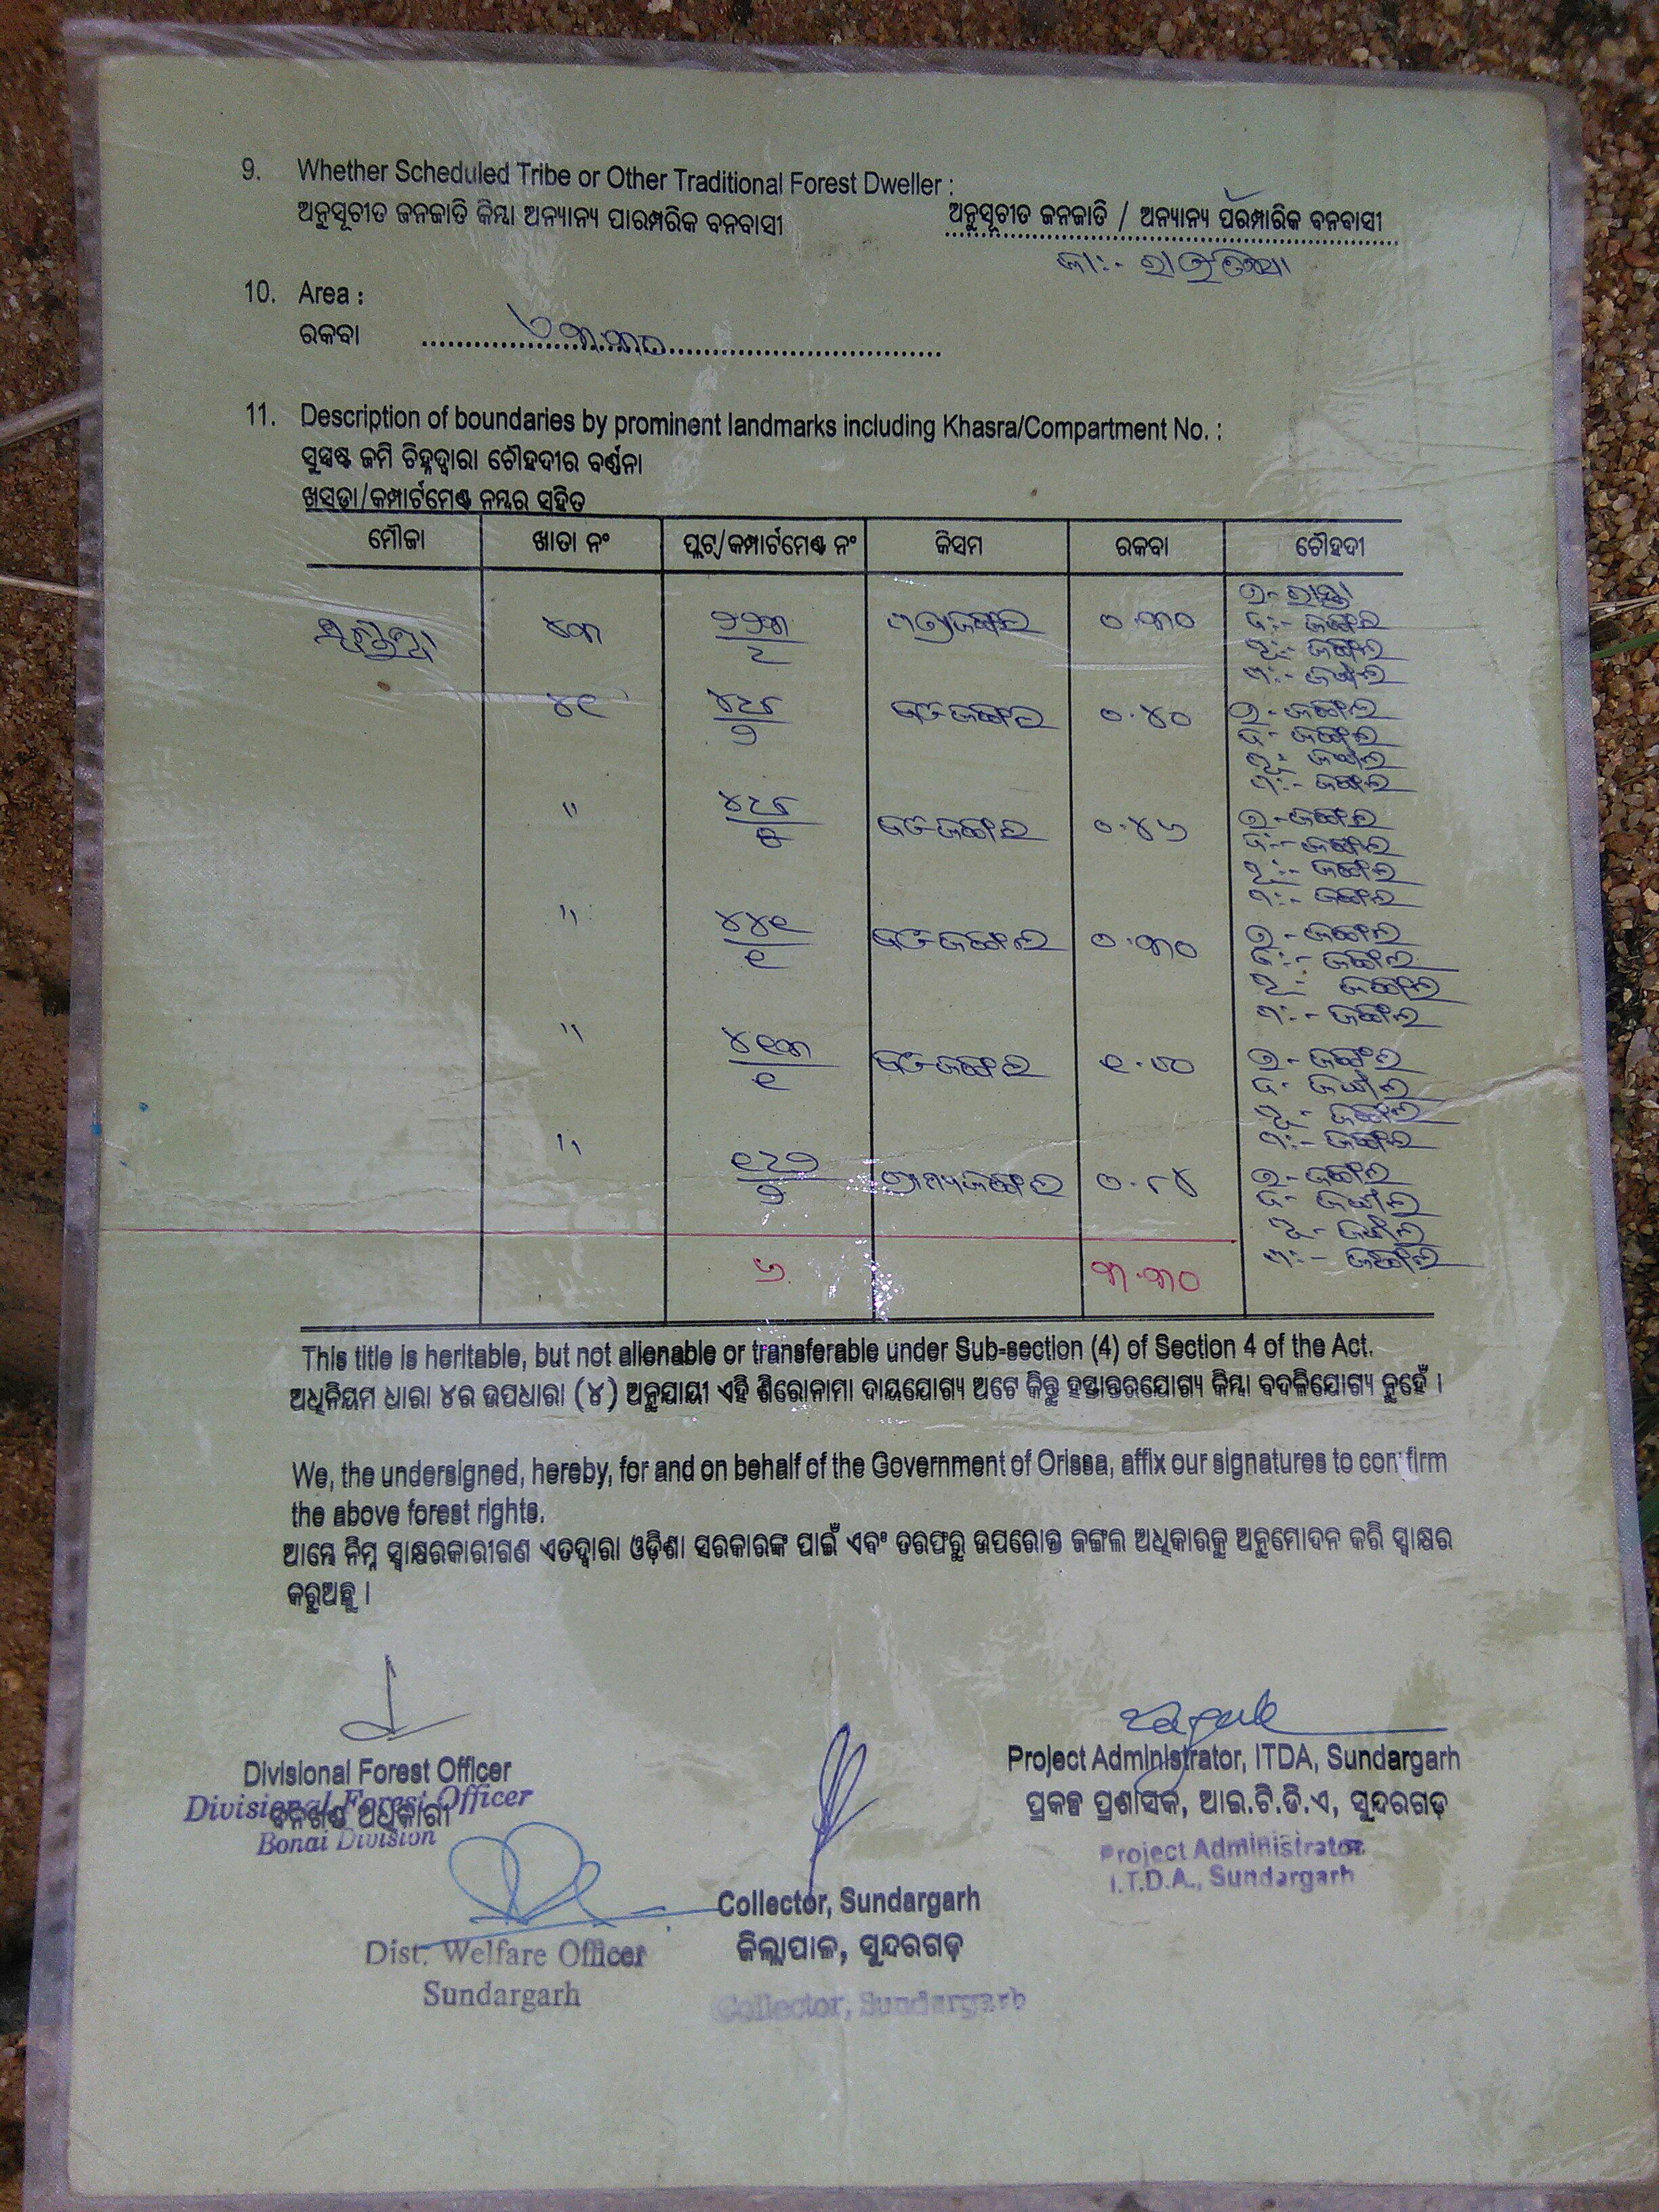 9. Whether Scheduled Tribe or Other Traditional Forest Dweller :
ଅନୁସୂଚୀତ ଜନଜାତି କିମ୍ବା ଅନ୍ୟାନ୍ୟ ପାରମ୍ପରିକ ବନବାସୀ ଅନୁସୂଚୀତ ଜନଜାତି / ଅନ୍ୟାନ୍ୟ ପରମ୍ପାରିକ ବନବାସୀ
10. Area :
ରକବା
11. Description of boundaries by prominent landmarks including Khasra/Compartment No. :
ସୁସ୍ପଷ୍ଟ ଜମି ଚିହ୍ନଦ୍ୱାରା ଚୌହଦୀର ବର୍ଣ୍ଣନା
ଖସଡ଼ା/କମ୍ପାର୍ଟମେଣ୍ଟ ନମ୍ବର ସହିତ
ମୌଜା ଖାତା ନଂ ପ୍ଲଟ୍/କମ୍ପାର୍ଟମେଣ୍ଟ ନଂ କିସମ ରକବା ଚୌହଦୀ
୨୨୩/୮ ୦.୩୦ ଉ- ରାସ୍ତା
ଦଃ- ଜଙ୍ଗଲ
ପୂଃ- ଜଙ୍ଗଲ
ପଃ- ଜଙ୍ଗଲ
୪୧ ୦.୪୦ ଉ- ଜଙ୍ଗଲ
ଦ- ଜଙ୍ଗଲ
ପୂ- ଜଙ୍ଗଲ
ପଃ- ଜଙ୍ଗଲ
" ୦.୪୬ ଉ- ଜଙ୍ଗଲ
ଦଃ- ଜଙ୍ଗଲ
ପୂଃ- ଜଙ୍ଗଲ
ପଃ- ଜଙ୍ଗଲ
" ୪୪୧/୧ ୦.୩୦ ଉ- ଜଙ୍ଗଲ
ଦଃ- ଜଙ୍ଗଲ
ପୂ- ଜଙ୍ଗଲ
ପଃ- ଜଙ୍ଗଲ
" ୪୧୩/୧ ୧.୦୦ ଉ- ଜଙ୍ଗଲ
ଦ- ଜଙ୍ଗଲ
ପୂ- ଜଙ୍ଗଲ
ପଃ- ଜଙ୍ଗଲ
" ୧୮୨/୨ ୦.୮୪ ଉ- ଜଙ୍ଗଲ
ଦ- ଜଙ୍ଗଲ
ପୂ- ଜଙ୍ଗଲ
ପଃ- ଜଙ୍ଗଲ
୬ ୩.୩୦
This title is heritable, but not alienable or transferable under Sub-section (4) of Section 4 of the Act.
ଅଧିନିୟମ ଧାରା ୪ର ଉପଧାରା (୪) ଅନୁଯାୟୀ ଏହି ଶିରୋନାମା ଦାୟଯୋଗ୍ୟ ଅଟେ କିନ୍ତୁ ହସ୍ତାନ୍ତରଯୋଗ୍ୟ କିମ୍ବା ବଦଳିଯୋଗ୍ୟ ନୁହେଁ ।
We, the undersigned, hereby, for and on behalf of the Government of Orissa, affix our signatures to confirm
the above forest rights.
ଆମ୍ଭେ ନିମ୍ନ ସ୍ୱାକ୍ଷରକାରୀଗଣ ଏତଦ୍ଦ୍ୱାରା ଓଡ଼ିଶା ସରକାରଙ୍କ ପାଇଁ ଏବଂ ତରଫରୁ ଉପରୋକ୍ତ ଜଙ୍ଗଲ ଅଧିକାରକୁ ଅନୁମୋଦନ କରି ସ୍ୱାକ୍ଷର
କରୁଅଛୁ ।
Divisional Forest Officer
Divisional Forest Officer
ବନଖଣ୍ଡ ଅଧିକାରୀ
Bonai Division
Project Administrator, ITDA, Sundargarh
ପ୍ରକଳ୍ପ ପ୍ରଶାସକ, ଆଇ.ଟି.ଡି.ଏ, ସୁନ୍ଦରଗଡ଼
Project Administrator
I.T.D.A., Sundargarh
Collector, Sundargarh
ଜିଲ୍ଲାପାଳ, ସୁନ୍ଦରଗଡ଼
Collector, Sundargarh
Dist. Welfare Officer
Sundargarh